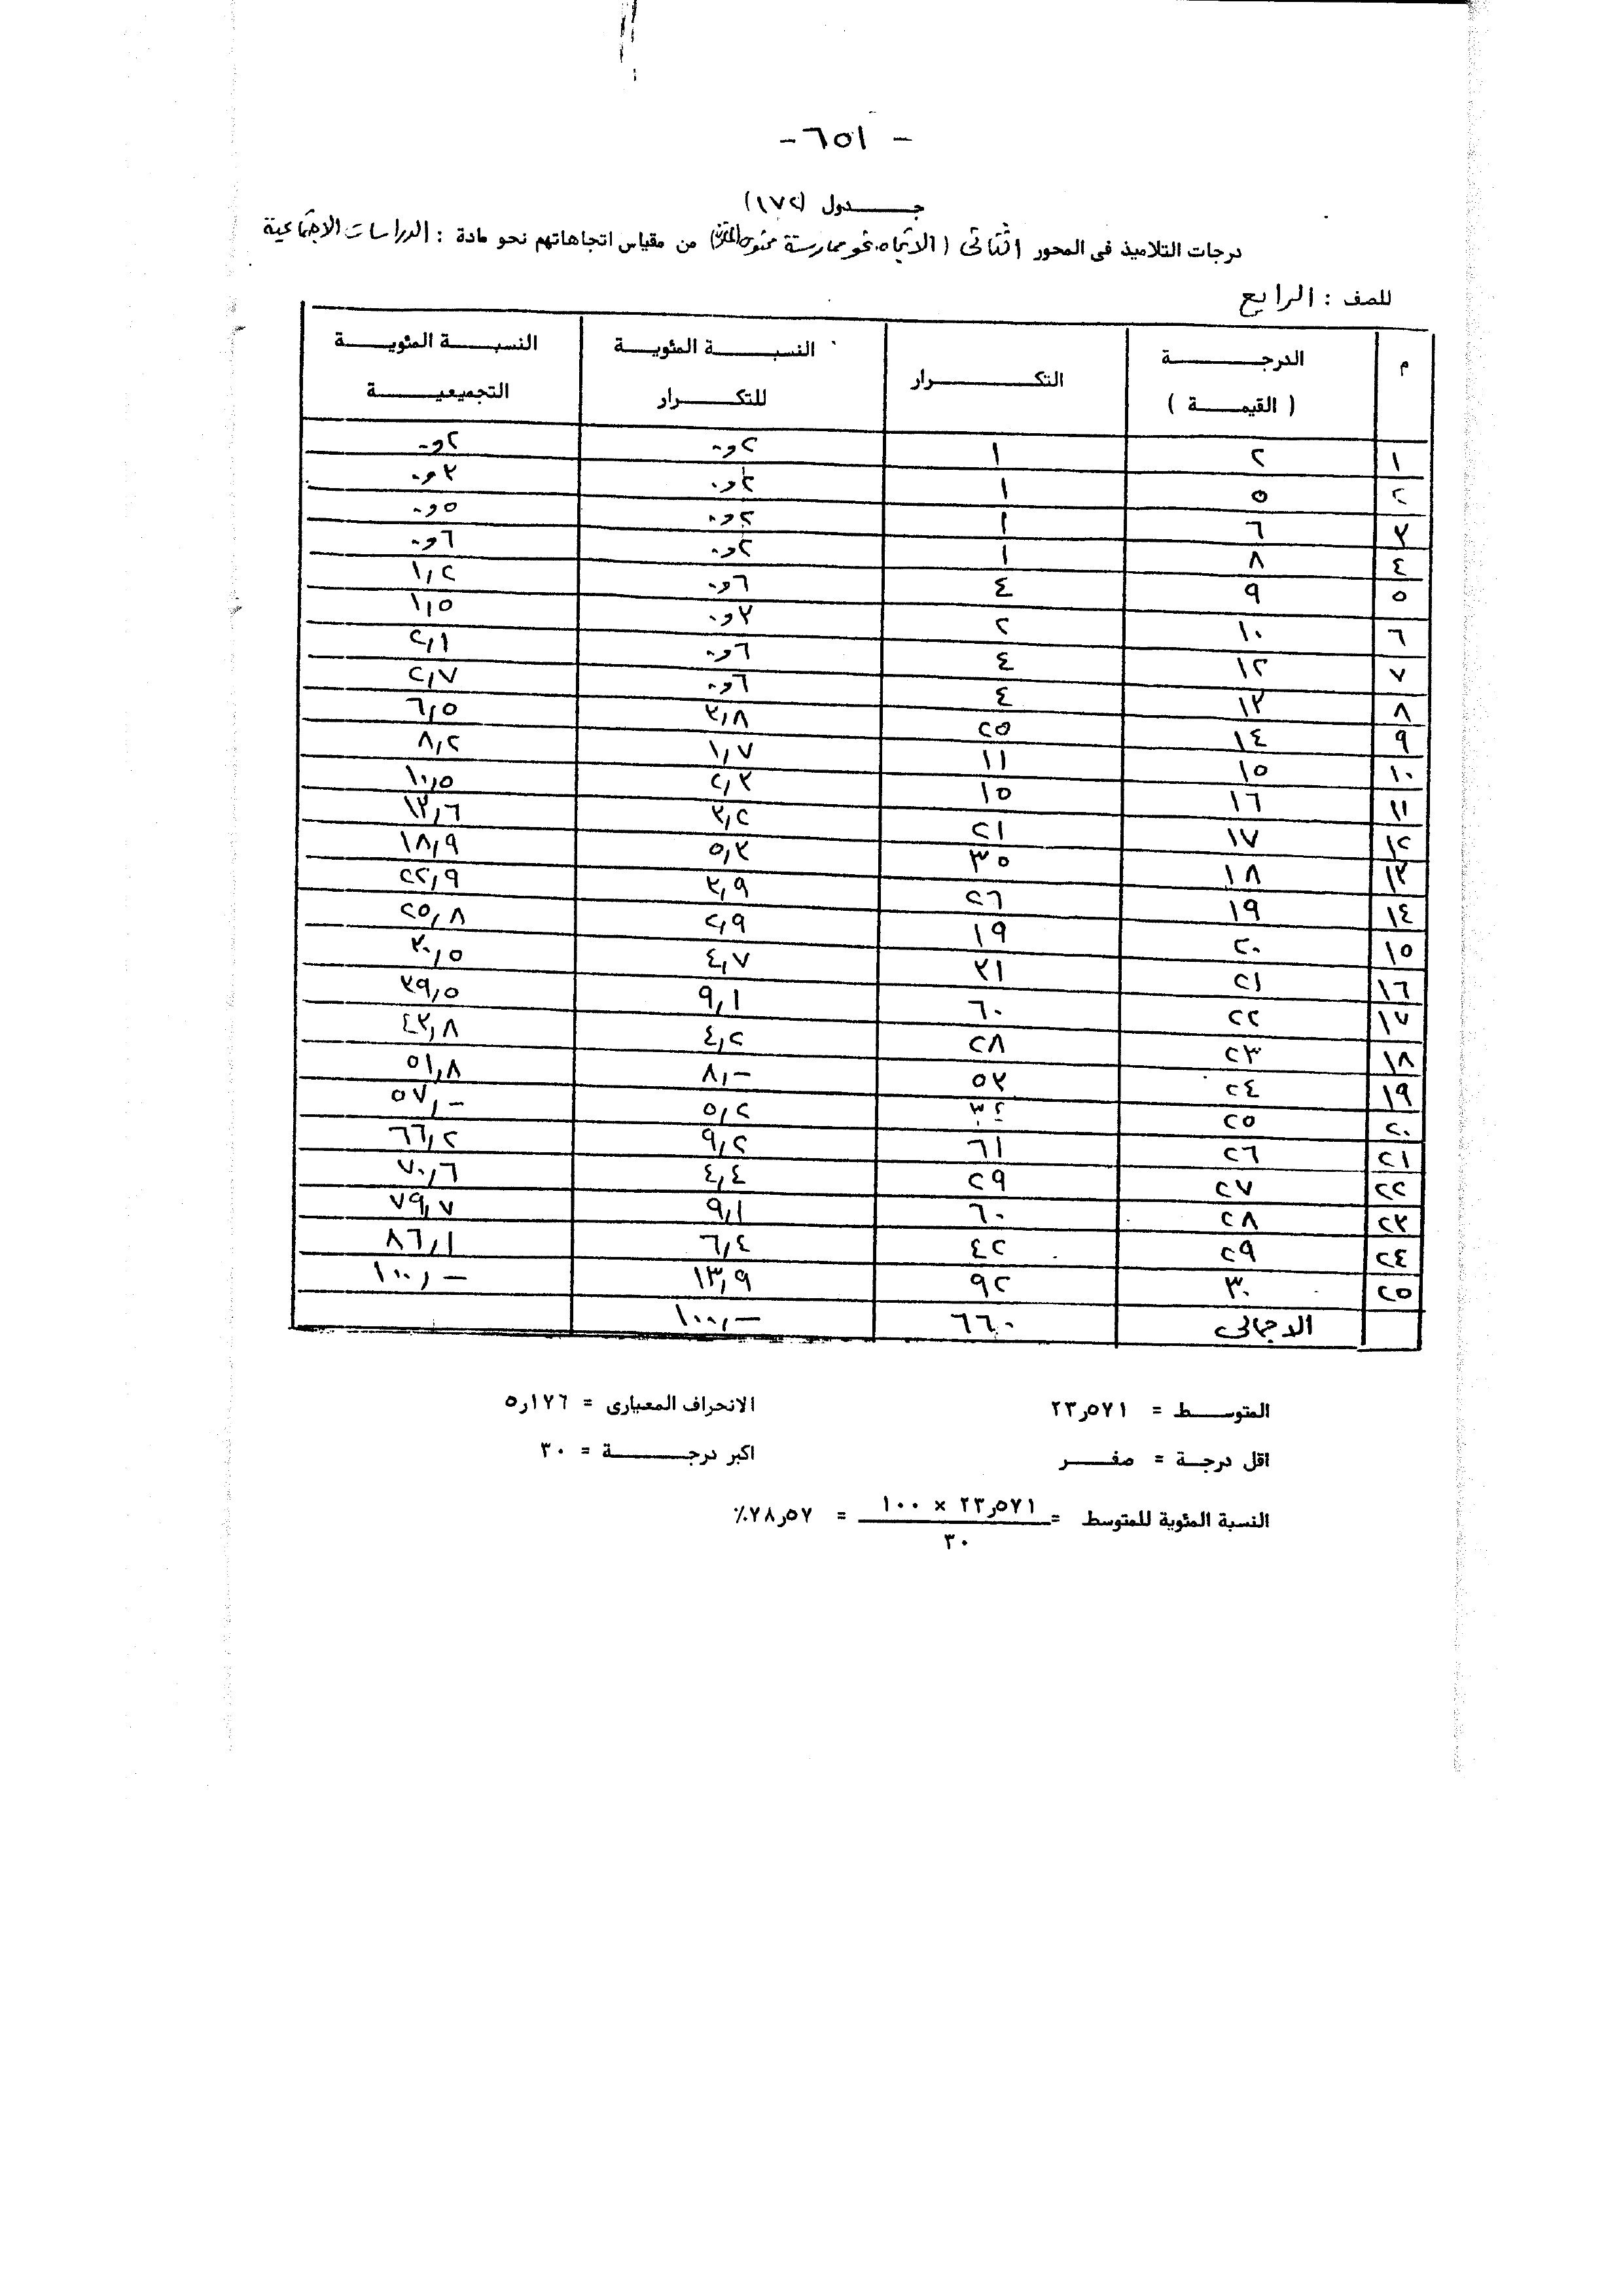 - ٦٥١ -
جـــدول (١٧٢)
درجات التلاميذ فى المحور الثانى ( الاتجاه نحو ممارسة محتوى المقرر) من مقياس اتجاهاتهم نحو مادة : الدراسات الاجتماعية
للصف : الرابع
م الدرجـــة ( القيمـــة ) التكـــرار النسبـــة المئويـــة للتكـــرار النسبـــة المئويـــة التجميعيـــة
١ ٢ ١ ٢و٠ ٢و٠
٢ ٥ ١ ٢و٠ ٣و٠
٣ ٦ ١ ٢و٠ ٥و٠
٤ ٨ ١ ٢و٠ ٦و٠
٥ ٩ ٤ ٦و٠ ١,٢
٦ ١٠ ٢ ٣و٠ ١,٥
٧ ١٢ ٤ ٦و٠ ٢,١
٨ ١٣ ٤ ٦و٠ ٢,٧
٩ ١٤ ٢٥ ٣,٨ ٦,٥
١٠ ١٥ ١١ ١,٧ ٨,٢
١١ ١٦ ١٥ ٢,٣ ١٠,٥
١٢ ١٧ ٢١ ٣,٢ ١٣,٦
١٣ ١٨ ٣٥ ٥,٣ ١٨,٩
١٤ ١٩ ٢٦ ٣,٩ ٢٢,٩
١٥ ٢٠ ١٩ ٢,٩ ٢٥,٨
١٦ ٢١ ٣١ ٤,٧ ٣٠,٥
١٧ ٢٢ ٦٠ ٩,١ ٣٩,٥
١٨ ٢٣ ٢٨ ٤,٢ ٤٣,٨
١٩ ٢٤ ٥٣ ٨,- ٥١,٨
٢٠ ٢٥ ٣٤ ٥,٢ ٥٧,-
٢١ ٢٦ ٦١ ٩,٢ ٦٦,٢
٢٢ ٢٧ ٢٩ ٤,٤ ٧٠,٦
٢٣ ٢٨ ٦٠ ٩,١ ٧٩,٧
٢٤ ٢٩ ٤٢ ٦,٤ ٨٦,١
٢٥ ٣٠ ٩٢ ١٣,٩ ١٠٠,-
الاجمالى ٦٦٠ ١٠٠,-
المتوســـط = ٥٧١ر٢٣ الانحراف المعيارى = ١٧٦ر٥
اقل درجـــة = صفـــر اكبر درجـــة = ٣٠
النسبة المئوية للمتوسط = ٥٧١ر٢٣ × ١٠٠ = ٥٧ر٧٨٪
٣٠